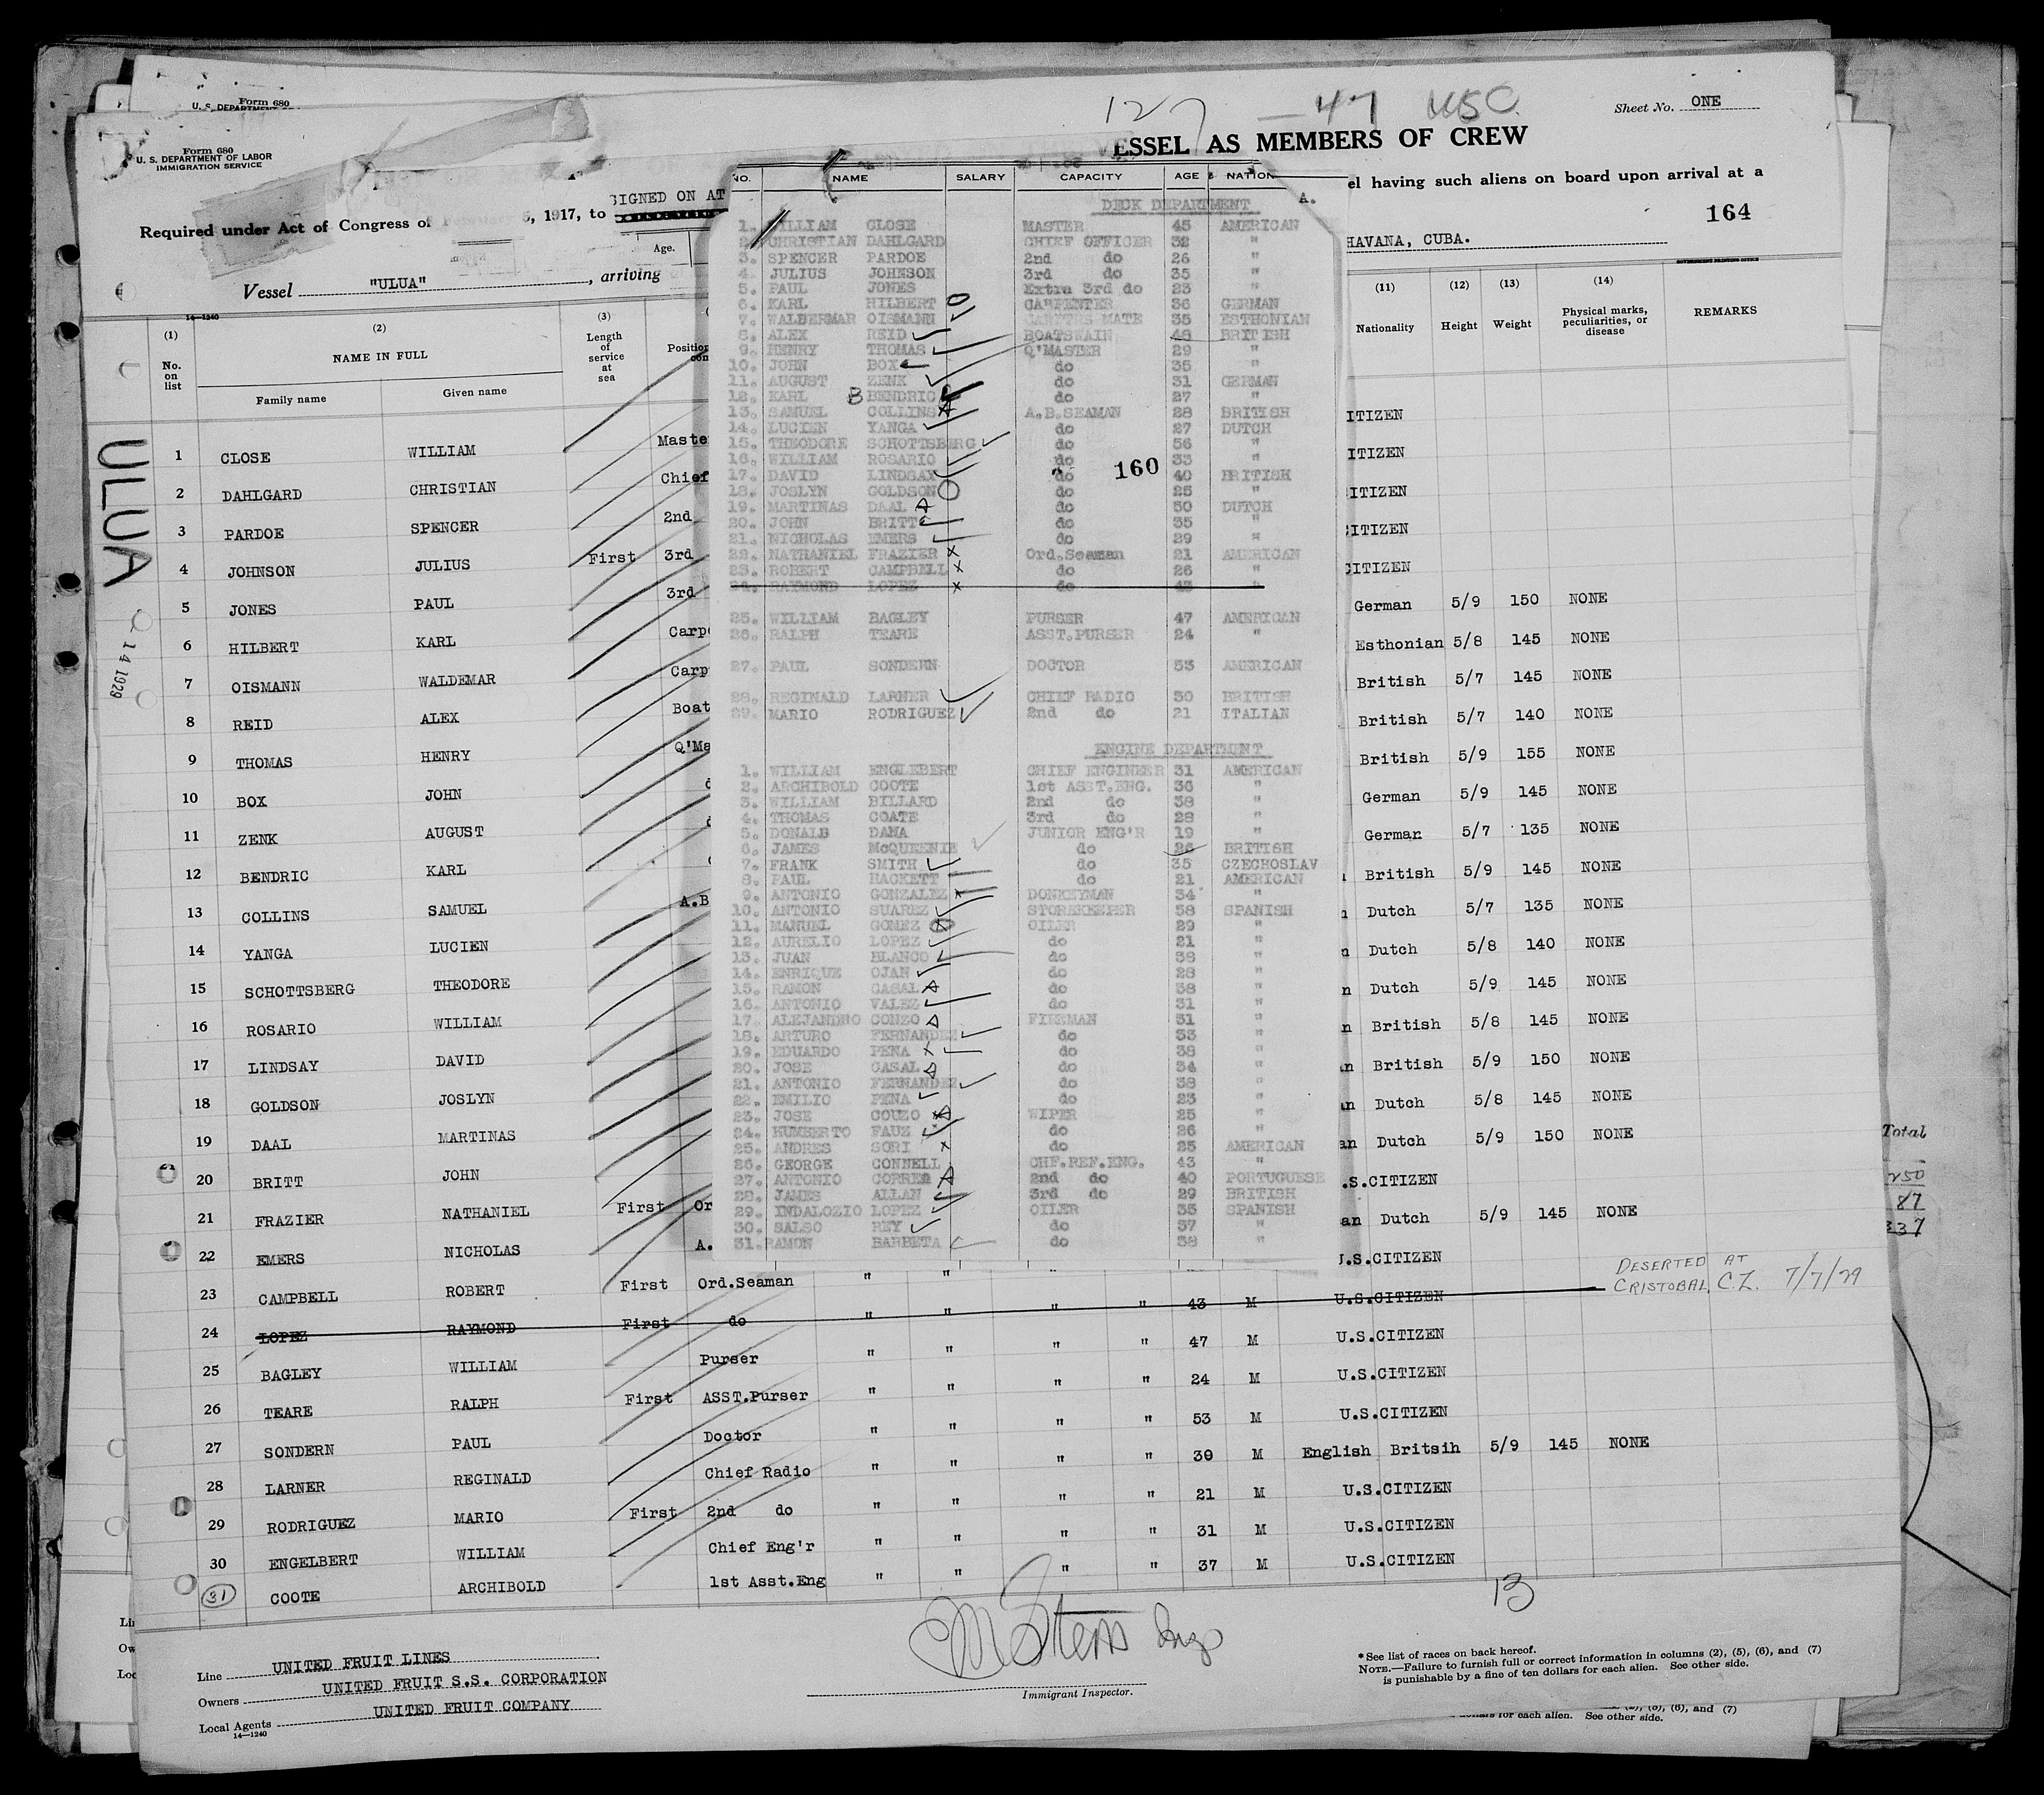 Form 680
U. S. DEPARTMENT
Form 680
U. S. DEPARTMENT OF LABOR
IMMIGRATION SERVICE
127 — 47 USC
Sheet No. ONE
ESSEL AS MEMBERS OF CREW
Required under Act of Congress of 5, 1917, to
SIGNED ON AT
el having such aliens on board upon arrival at a
164
Age.
HAVANA, CUBA.
Vessel "ULUA", arriving
14—1240
(1) (2) (3) (11) (12) (13) (14)
No. on list NAME IN FULL Length of service at sea Position Nationality Height Weight Physical marks, peculiarities, or disease REMARKS
Family name Given name
ULUA
14 1929
1 CLOSE WILLIAM Maste ITIZEN
2 DAHLGARD CHRISTIAN Chief ITIZEN
3 PARDOE SPENCER 2nd ITIZEN
4 JOHNSON JULIUS First 3rd CITIZEN
5 JONES PAUL 3rd CITIZEN
6 HILBERT KARL Carpe German 5/9 150 NONE
7 OISMANN WALDEMAR Carp Esthonian 5/8 145 NONE
8 REID ALEX Boat British 5/7 145 NONE
9 THOMAS HENRY Q'Ma British 5/7 140 NONE
10 BOX JOHN British 5/9 155 NONE
11 ZENK AUGUST German 5/9 145 NONE
12 BENDRIC KARL German 5/7 135 NONE
13 COLLINS SAMUEL A.B British 5/9 145 NONE
14 YANGA LUCIEN Dutch 5/7 135 NONE
15 SCHOTTSBERG THEODORE Dutch 5/8 140 NONE
16 ROSARIO WILLIAM Dutch 5/9 145 NONE
17 LINDSAY DAVID British 5/8 145 NONE
18 GOLDSON JOSLYN British 5/9 150 NONE
19 DAAL MARTINAS Dutch 5/8 145 NONE
20 BRITT JOHN Dutch 5/9 150 NONE
21 FRAZIER NATHANIEL First Or .S.CITIZEN
22 EMERS NICHOLAS A. an Dutch 5/9 145 NONE
23 CAMPBELL ROBERT First Ord.Seaman " " " U.S.CITIZEN
24 LOPEZ RAYMOND First do " " " " 43 M U.S.CITIZEN DESERTED AT CRISTOBAL, C.Z. 7/7/29
25 BAGLEY WILLIAM Purser " " " " 47 M U.S.CITIZEN
26 TEARE RALPH First ASST.Purser " " " " 24 M U.S.CITIZEN
27 SONDERN PAUL Doctor " " " " 53 M U.S.CITIZEN
28 LARNER REGINALD Chief Radio " " " " 30 M English Britsih 5/9 145 NONE
29 RODRIGUEZ MARIO First 2nd do " " " " 21 M U.S.CITIZEN
30 ENGELBERT WILLIAM Chief Eng'r " " " " 31 M U.S.CITIZEN
31 COOTE ARCHIBOLD 1st Asst.Eng " " " " 37 M U.S.CITIZEN
NO. NAME SALARY CAPACITY AGE & NATION
DECK DEPARTMENT
A.
1. WILLIAM CLOSE MASTER 45 AMERICAN
2. CHRISTIAN DAHLGARD CHIEF OFFICER 32 "
3. SPENCER PARDOE 2nd do 26 "
4. JULIUS JOHNSON 3rd do 35 "
5. PAUL JONES Extra 3rd do 23 "
6. KARL HILBERT CARPENTER 36 GERMAN
7. WALDERMAR OISMANN CARPTRS MATE 35 ESTHONIAN
8. ALEX REID BOATSWAIN 48 BRITISH
9. HENRY THOMAS Q'MASTER 29 "
10. JOHN BOX do 35 "
11. AUGUST ZENK do 31 GERMAN
12. KARL B BENDRIC do 27 "
13. SAMUEL COLLINS A.B.SEAMAN 28 BRITISH
14. LUCIEN YANGA do 27 DUTCH
15. THEODORE SCHOTTSBERG do 56 "
16. WILLIAM ROSARIO do 33 "
160
17. DAVID LINDSAY do 40 BRITISH
18. JOSLYN GOLDSON do 25 "
19. MARTINAS DAAL do 30 DUTCH
20. JOHN BRITT do 35 "
21. NICHOLAS EMERS do 29 "
22. NATHANIEL FRAZIER Ord.Seaman 21 AMERICAN
23. ROBERT CAMPBELL do 26 "
24. RAYMOND LOPEZ do 43 "
25. WILLIAM BAGLEY PURSER 47 AMERICAN
26. RALPH TEARE ASST.PURSER 24 "
27. PAUL SONDERN DOCTOR 53 AMERICAN
28. REGINALD LARNER CHIEF RADIO 30 BRITISH
29. MARIO RODRIGUEZ 2nd do 21 ITALIAN
ENGINE DEPARTMENT
1. WILLIAM ENGLEBERT CHIEF ENGINEER 31 AMERICAN
2. ARCHIBOLD COOTE 1st ASST.ENG. 36 "
3. WILLIAM BILLARD 2nd do 38 "
4. THOMAS COATE 3rd do 28 "
5. DONALD DANA JUNIOR ENG'R 19 "
6. JAMES McQUEENIE do 26 BRITISH
7. FRANK SMITH do 35 CZECHOSLAV
8. PAUL HACKETT do 21 AMERICAN
9. ANTONIO GONZALEZ DONKEYMAN 34 "
10. ANTONIO SUAREZ STOREKEEPER 58 SPANISH
11. MANUEL GOMEZ OILER 29 "
12. AURELIO LOPEZ do 21 "
13. JUAN BLANCO do 38 "
14. ENRIQUE OJAN do 28 "
15. RAMON CASAL do 38 "
16. ANTONIO VALEZ do 31 "
17. ALEJANDRO COUZO FIREMAN 31 "
18. ARTURO FERNANDEZ do 33 "
19. EDUARDO PENA do 38 "
20. JOSE CASAL do 34 "
21. ANTONIO FERNANDEZ do 38 "
22. EMILIO PENA do 23 "
23. JOSE COUZO WIPER 25 "
24. HUMBERTO FAUZ do 26 "
25. ANDRES SORI do 25 AMERICAN
26. GEORGE CONNELL CHF.REF.ENG. 43 "
27. ANTONIO CORREA 2nd do 40 PORTUGUESE
28. JAMES ALLAN 3rd do 29 BRITISH
29. INDALOZIO LOPEZ OILER 35 SPANISH
30. SALSO REY do 37 "
31. RAMON BARBETA do 38 "
Total
250
87
337
13
Line UNITED FRUIT LINES
Owners UNITED FRUIT S.S. CORPORATION
Local Agents UNITED FRUIT COMPANY
14—1240
Immigrant Inspector.
* See list of races on back hereof.
NOTE.—Failure to furnish full or correct information in columns (2), (5), (6), and (7)
is punishable by a fine of ten dollars for each alien. See other side.
(5), (6), and (7)
for each alien. See other side.